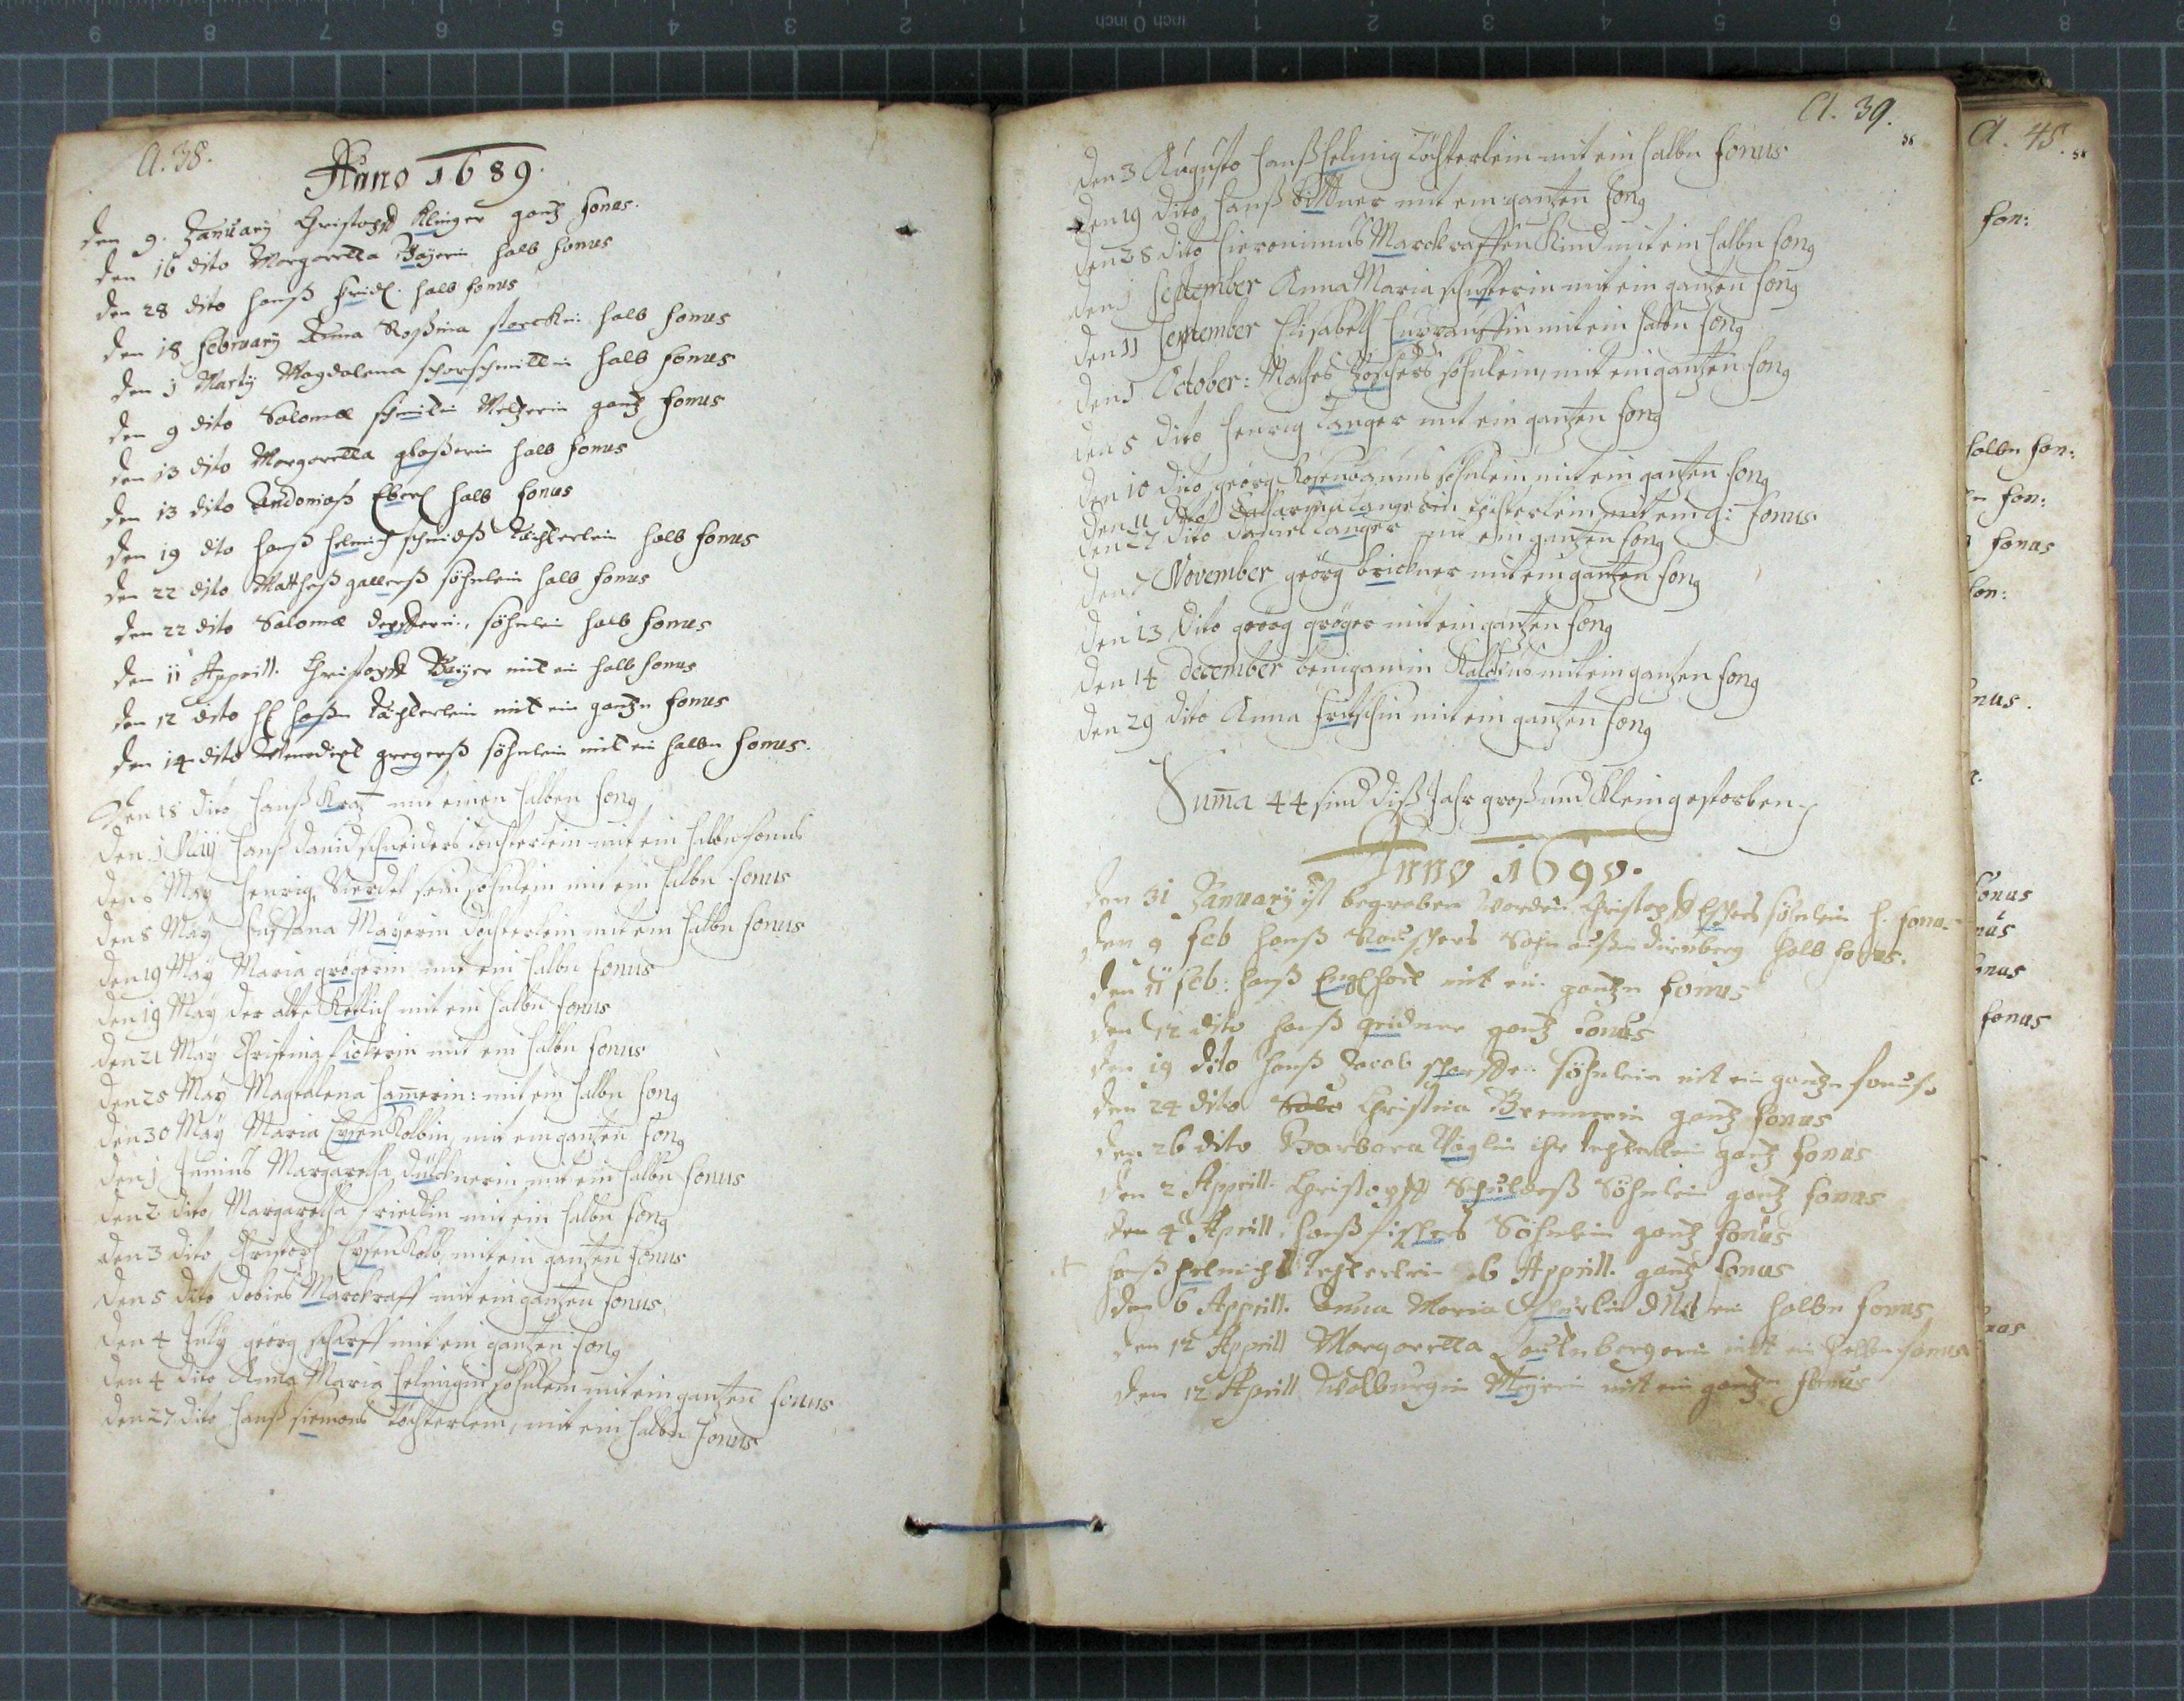 A. 38.
Anno 1689.
den 9. January Christoph Klinger gantz fonus.
den 16 dito Margaretta Bayerin halb fonus
den 28 dito Hanß Fridl. halb fonus
den 18 February Anna Roßina storckin halb fonus
den 1 Marty Magdalena schorschmittin halb fonus
den 9 dito Salomæ schmitin Meltzerin gantz fonus
den 13 dito Margaretta gloßerin halb fonus
den 13 dito Andonioß Eberl halb fonus
den 19 dito Hanß Helmich schmidß töchterlein halb fonus
den 22 dito Mattheß gallerß söhnlein halb fonus
den 22 dito Salomæ söhnlein halb fonus
den 11 Apprill. Christoph Bayer mit ein halb fonus
den 12 dito Haßn töchterlein mit ein gantzn fonus
den 14 dito Benedict gregerß söhnlein mit ein halbn fonus.
den 18 dito Hanß Kratz mit einen halben fong
den 1 May Hanß David schneiders töchterlein mit ein halbn fonus
den 6 May Henrig Vierdel sein söhnlein mit ein halbn fonus
den 8 May Sussana Mayerin döchterlein mit ein halbn fonus
den 19 May Maria grögerin mit ein halbn fonus
den 19 May der alte Kettlich mit ein halbn fonus
den 21 May Christina mit ein halbn fonus
den 25 May Magdalena Ham̅erin: mit ein halbn fong
den 30 May Maria Eysenkolbin, mit ein gantzen fong
den 1 Junius Margaretha dücknerin mit ein halbn fonus
den 2 dito Margaretha friedlin mit ein halbn fong
den 3 dito Christoph Eysenkolb, mit ein gantzen fonus
den 5 dito dobies Marckraff mit ein gantzen fonus,
den 4 July georg scharff mit ein gantzen fong
den 4 dito Anna Maria Helmigin söhnlein mit ein gantzen fonus
den 27 dito Hanß siemons töchterlein, mit ein halbn fonus
A. 39.
den 3 Augusto Hanß Helmig töchterlein mit ein halbn fonus
den 19 dito Hanß Bittner mit ein gantzen fong
den 28 dito Hieronimus Marckraffen Kind mit ein halbn fong
den 1 September Anna Maria schusterin mit ein gantzen fong
den 11 September Elisabeth mit ein halbn fong
den 1 October: Mathes söhnlein, mit ein gantzen fong
den 5 dito Henrig Langer mit ein gantzen fong
den 10 dito georg Rosenbaums söhnlein mit ein gantzen fong
den 11 dito Catharina Langerin töchterlein mit ein g: fonus
den 22 dito Daniel Langer mit ein gantzen fong
den 7 November georg brickner mit ein gantzen fong
den 13 dito georg gröger mit ein gantzen fong
den 14 december benigamin mit ein gantzen fong
den 29 dito Anna Fritschin mit ein gantzen fong
Sum̅a 44 sind diß Jahr groß und klein gestorben
Anno 1690.
den 31 January ist begraben worden Christoph söhnlein h. fonus
den 9 Feb Hanß Rauschers Sohn außm dürnberg halb fonus.
den 11 Feb: Hanß Englhart mit ein gantzn fonus
den 12 dito Hanß gridner gantz fonus
den 19 dito Hanß Jacob söhnlein mit ein gantzn fonus
den 24 dito Christina Brennerin gantz fonus
den 26 dito Barbara Vöglin ihr techterlein gantz fonus
den 2 Apprill. Christoph Schuldeß Söhnlein gantz fonus
den 4 Aprill. Hanß fischers Söhnlein gantz fonus
Hanß Helmichs techterlein 6 Apprill. gantz fonus
den 6 Apprill. Anna Maria Mit ein halbn fonus
den 12 Apprill Margaretta mitt ein halbn fonus
den 12 Aprill Walburgin Mayrin mit ein gantzn fonus
A. 45.
fon:
halbn fon:
fon:
fonus
fon:
fonus
fonus